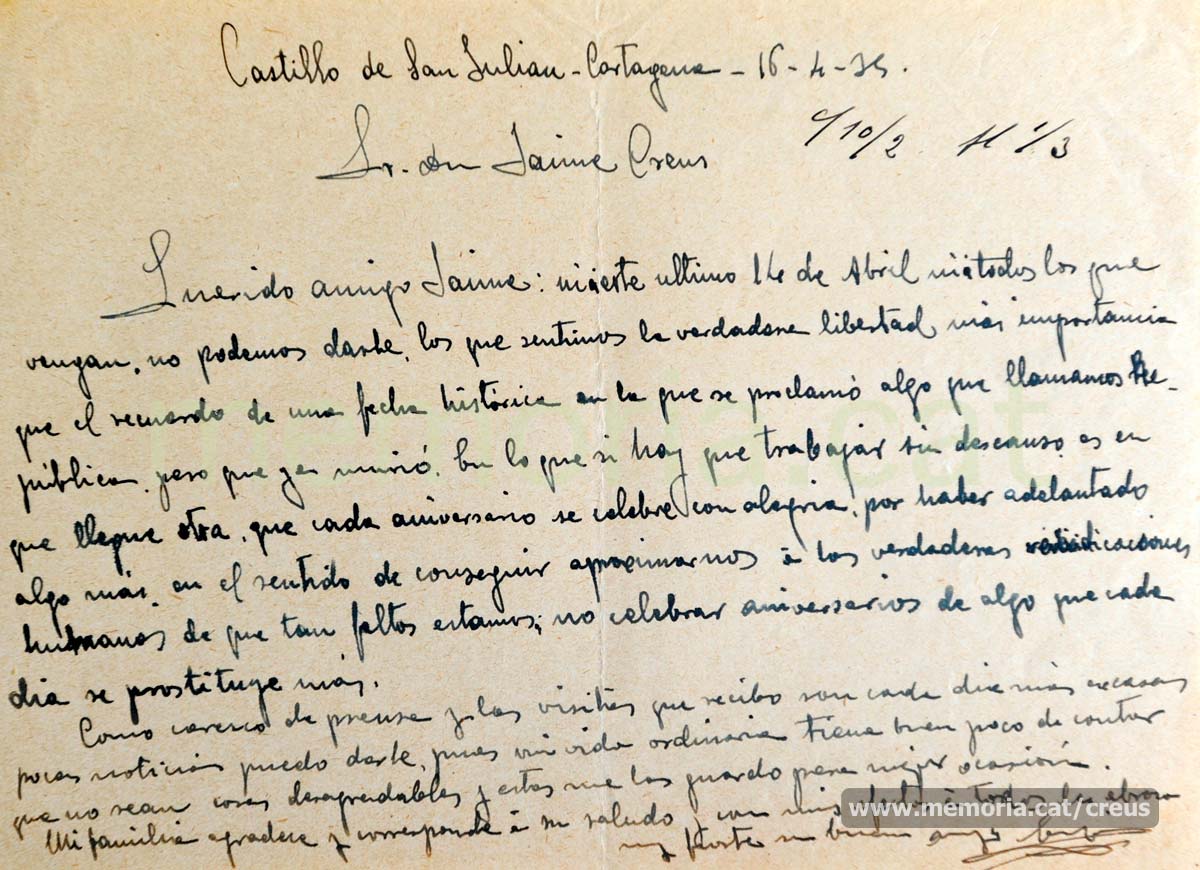 Castillo de San Julian - Cartagena - 16 - 4 - 35.
10/2 1/3
Sr. don Jaime Creus
Querido amigo Jaime: ni á este ultimo 14 de Abril ni á todos los que
vengan, no podemos darle, los que sentimos la verdadera libertad, más importancia
que el recuerdo de una fecha histórica en la que se proclamó algo que llamamos Re-
pública, pero que ya murió. En lo que si hay que trabajar sin descanso, es en
que llegue otra, que cada aniversario se celebre con alegria, por haber adelantado
algo más, en el sentido de conseguir aproximarnos á las verdaderas reividicaciones
humanas de que tan faltos estamos; no celebrar aniversarios de algo que cada
dia se prostituye más.
Como caresco de prensa y las visitas que recibo son cada dia más escasas
pocas noticias puedo darle, pues mi vida ordinaria tiene bien poco de contar
que no sean cosas desagradables y estas me las guardo para mejor ocasión.
Mi familia agradece y corresponde á su saludo y con mis á todos le abraza
su buen amigo
memoria.cat
www.memoria.cat/creus